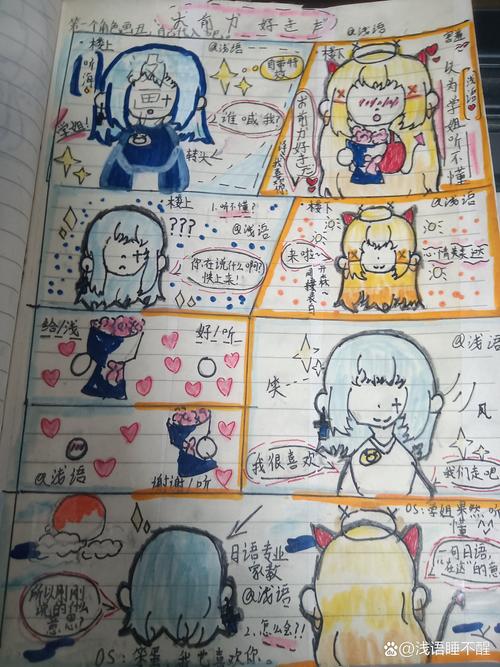 大有力 好走虎
第一个角色画丑
@浅语
楼上
听海
自带特效
谁喊我?
学姐!
转头
@浅语
楼下
以为学姐听不懂
大有力好走虎
我喜欢你
楼上
1.听不懂?
@浅语
???
你在说什么啊?
快上来!
楼下
@浅语
来啦~
心情表达
给/浅
好/听
@浅语
谢谢/听
@浅语
笑
风
我很喜欢
我们走吧
OS:学姐果然听懂
所以刚刚说的什么意思?
日语专业
家教
@浅语
2.怎么会?!
一句日语,
"在这"的意
OS:笨蛋,我也喜欢你。
@浅语睡不醒